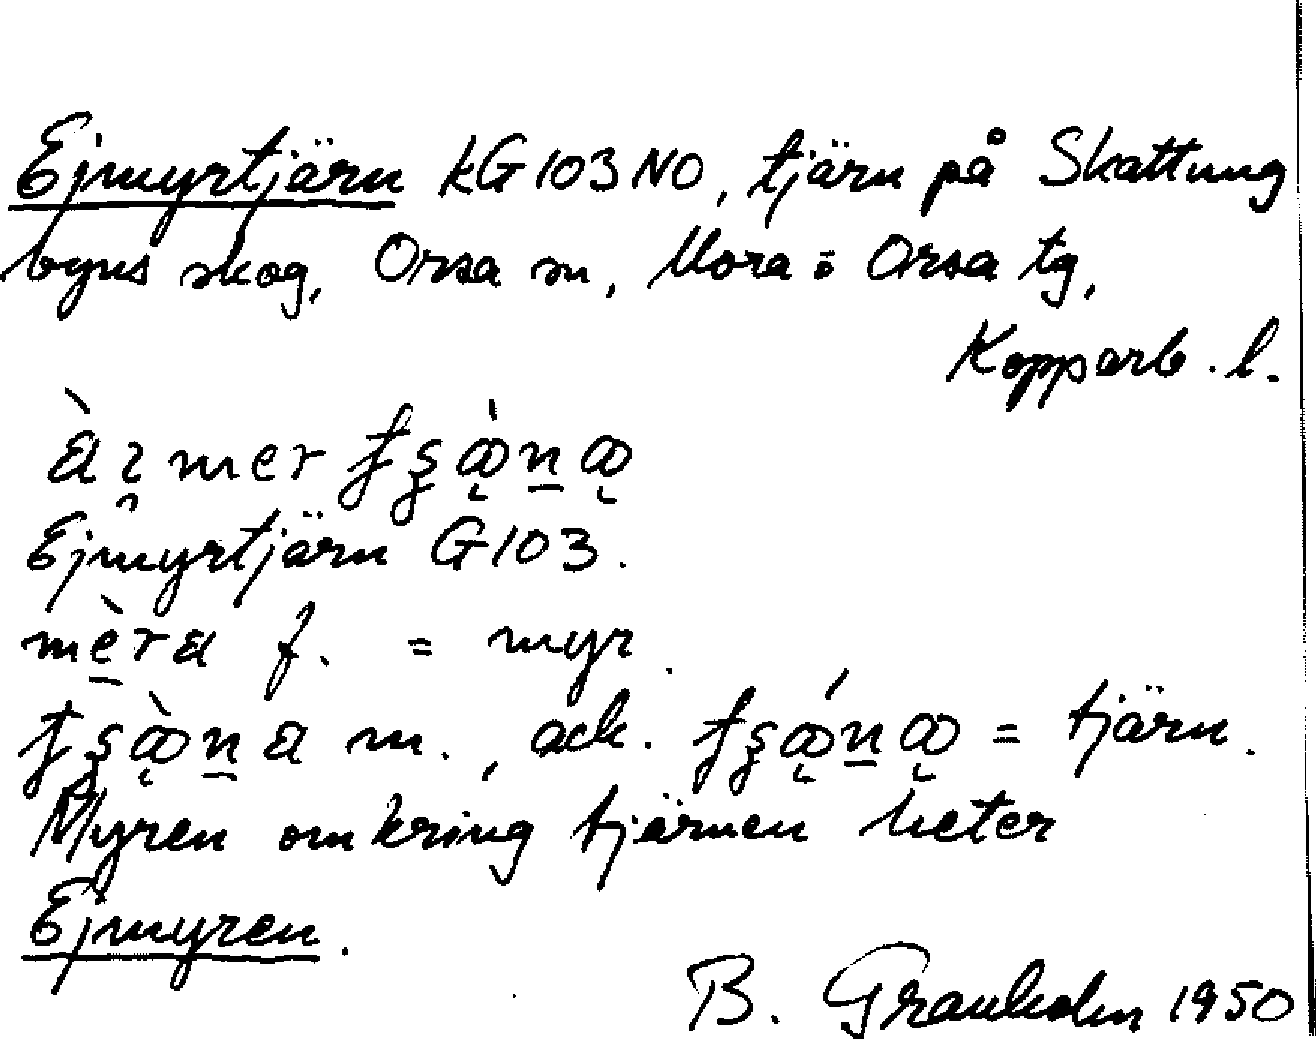 Ejmyrtjärn kG103NO, tjärn på Skattung
byns skog, Orsa sn, Mora o Orsa tg,
Kopparb. l.
Ejmyrtjärn G103.
mèra f. = myr.
m., ack. = tjärn.
Myren omkring tjärnen heter
Ejmyren.
B. Granholm 1950